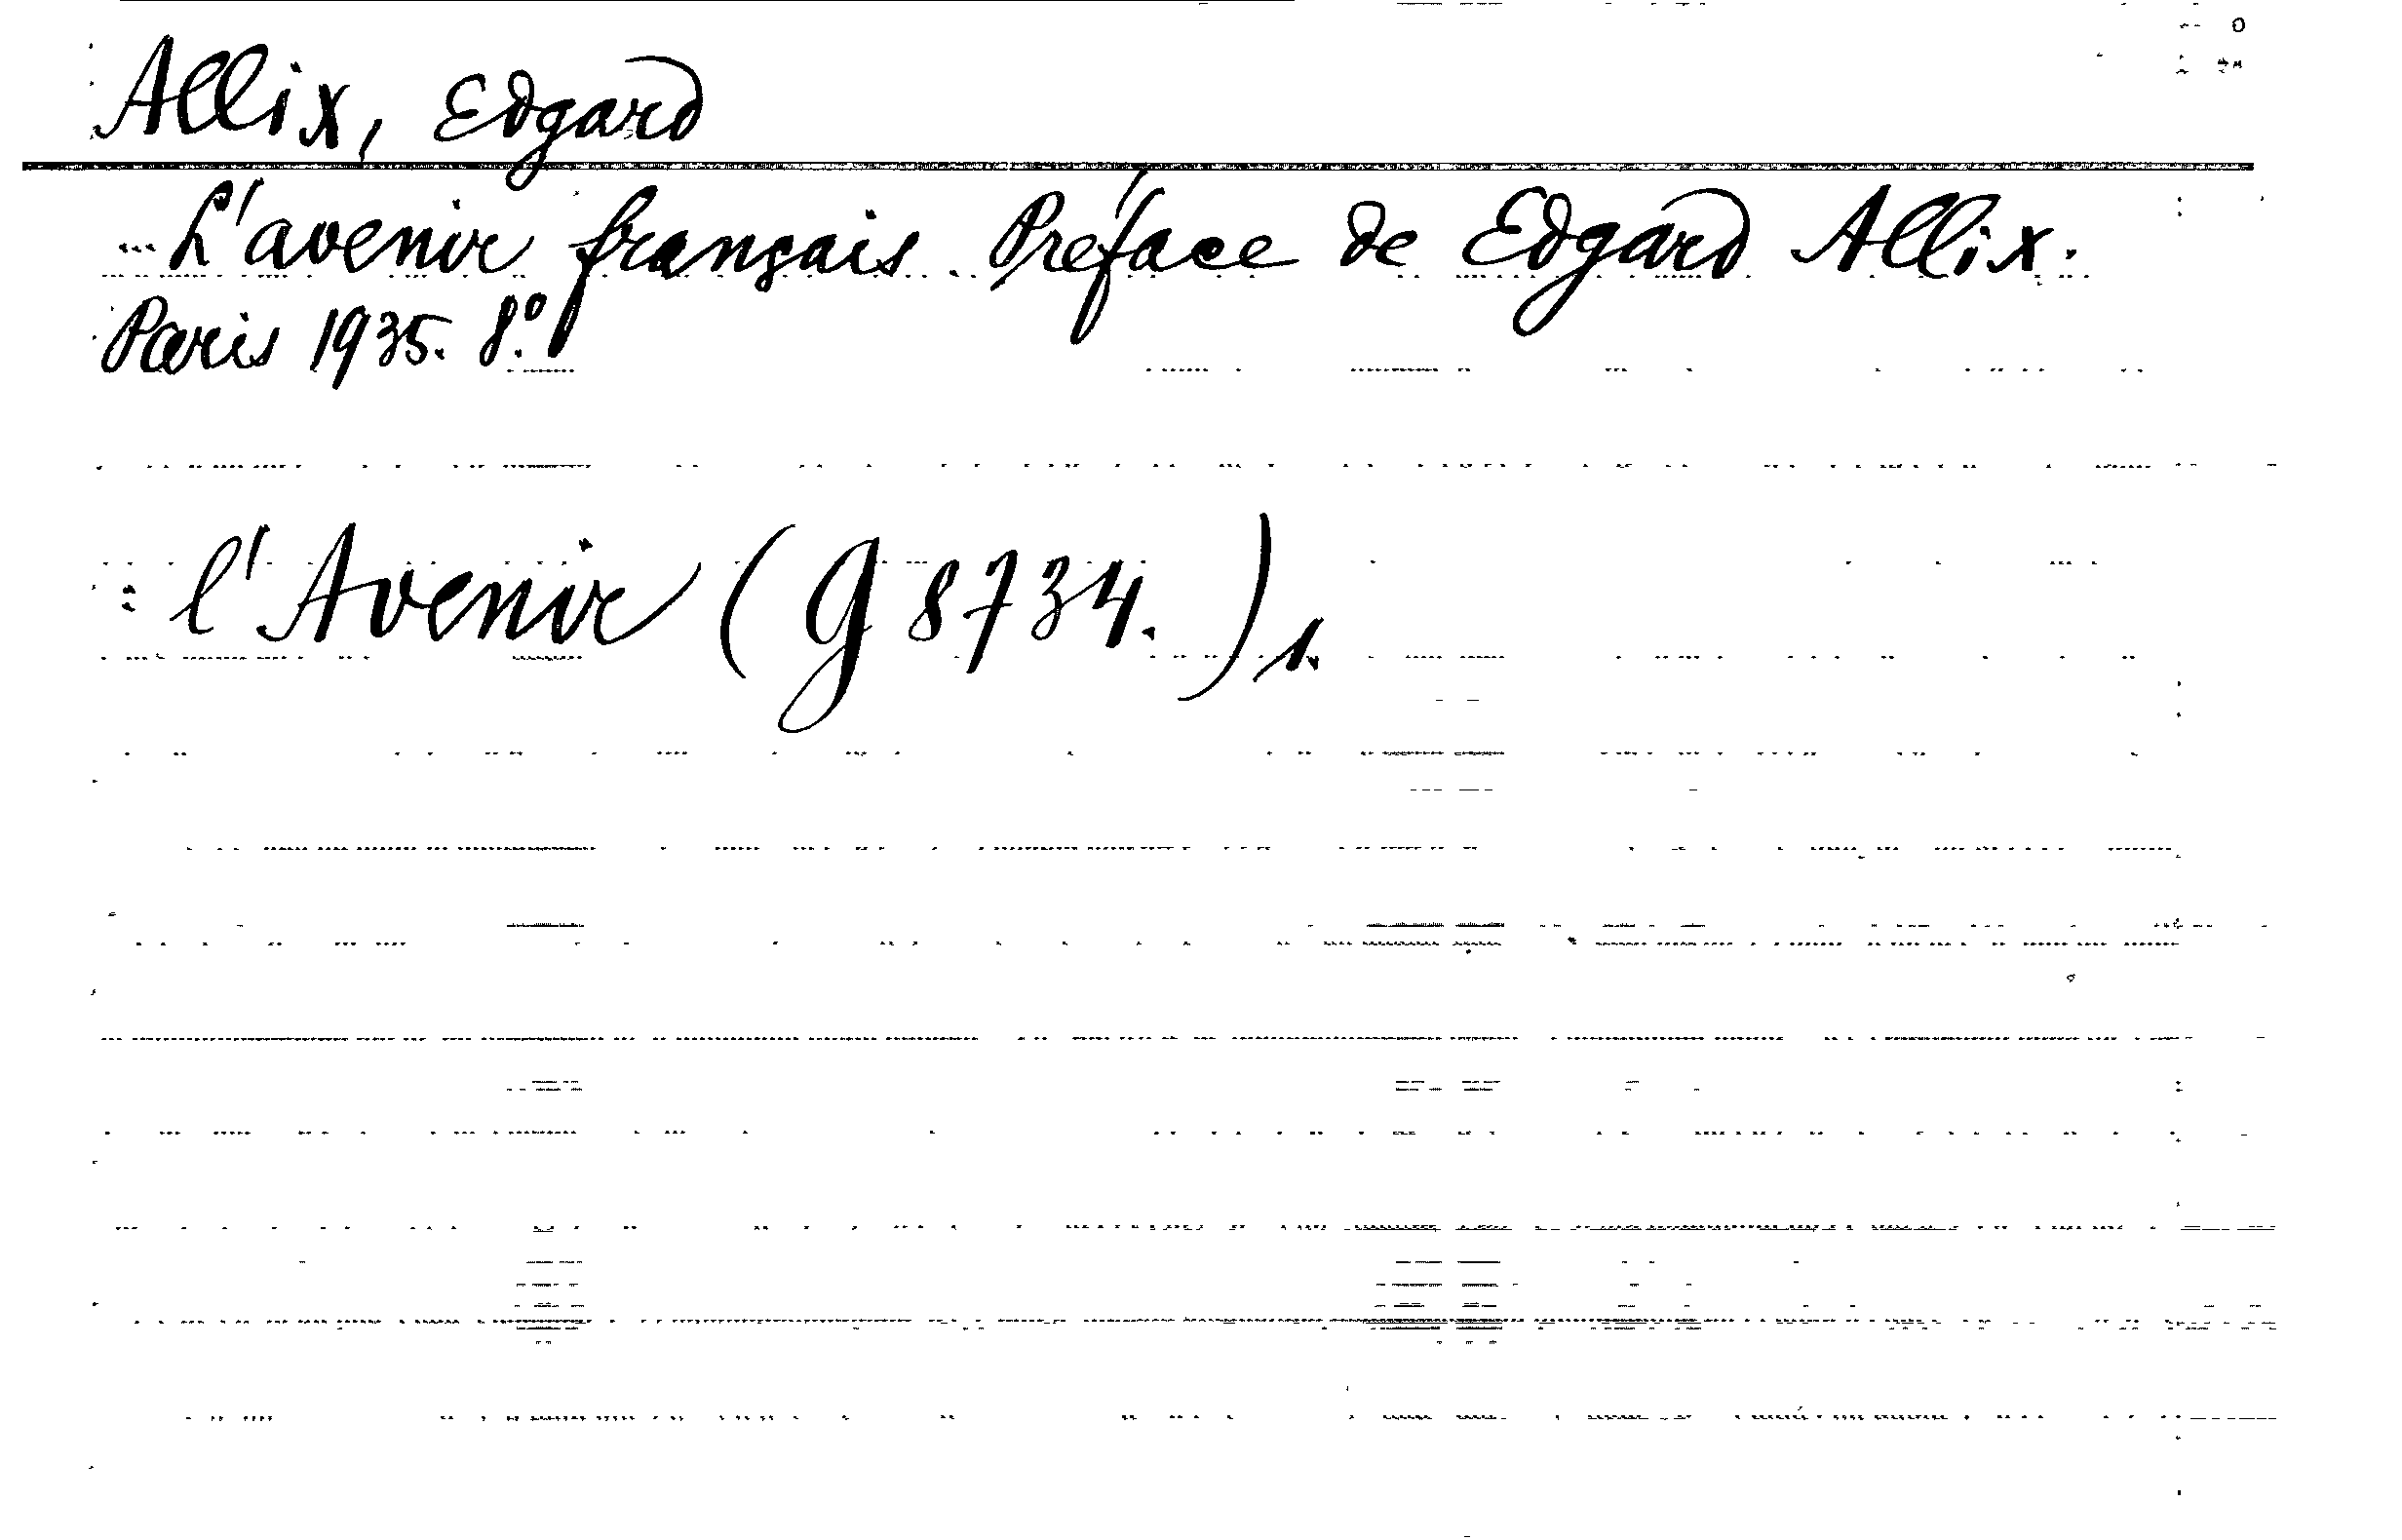 Allix, Edgard
L'avenir français. Préface de Edgard Allix.
Paris 1935. 8.º
l'Avenir (G 8734.) 1.